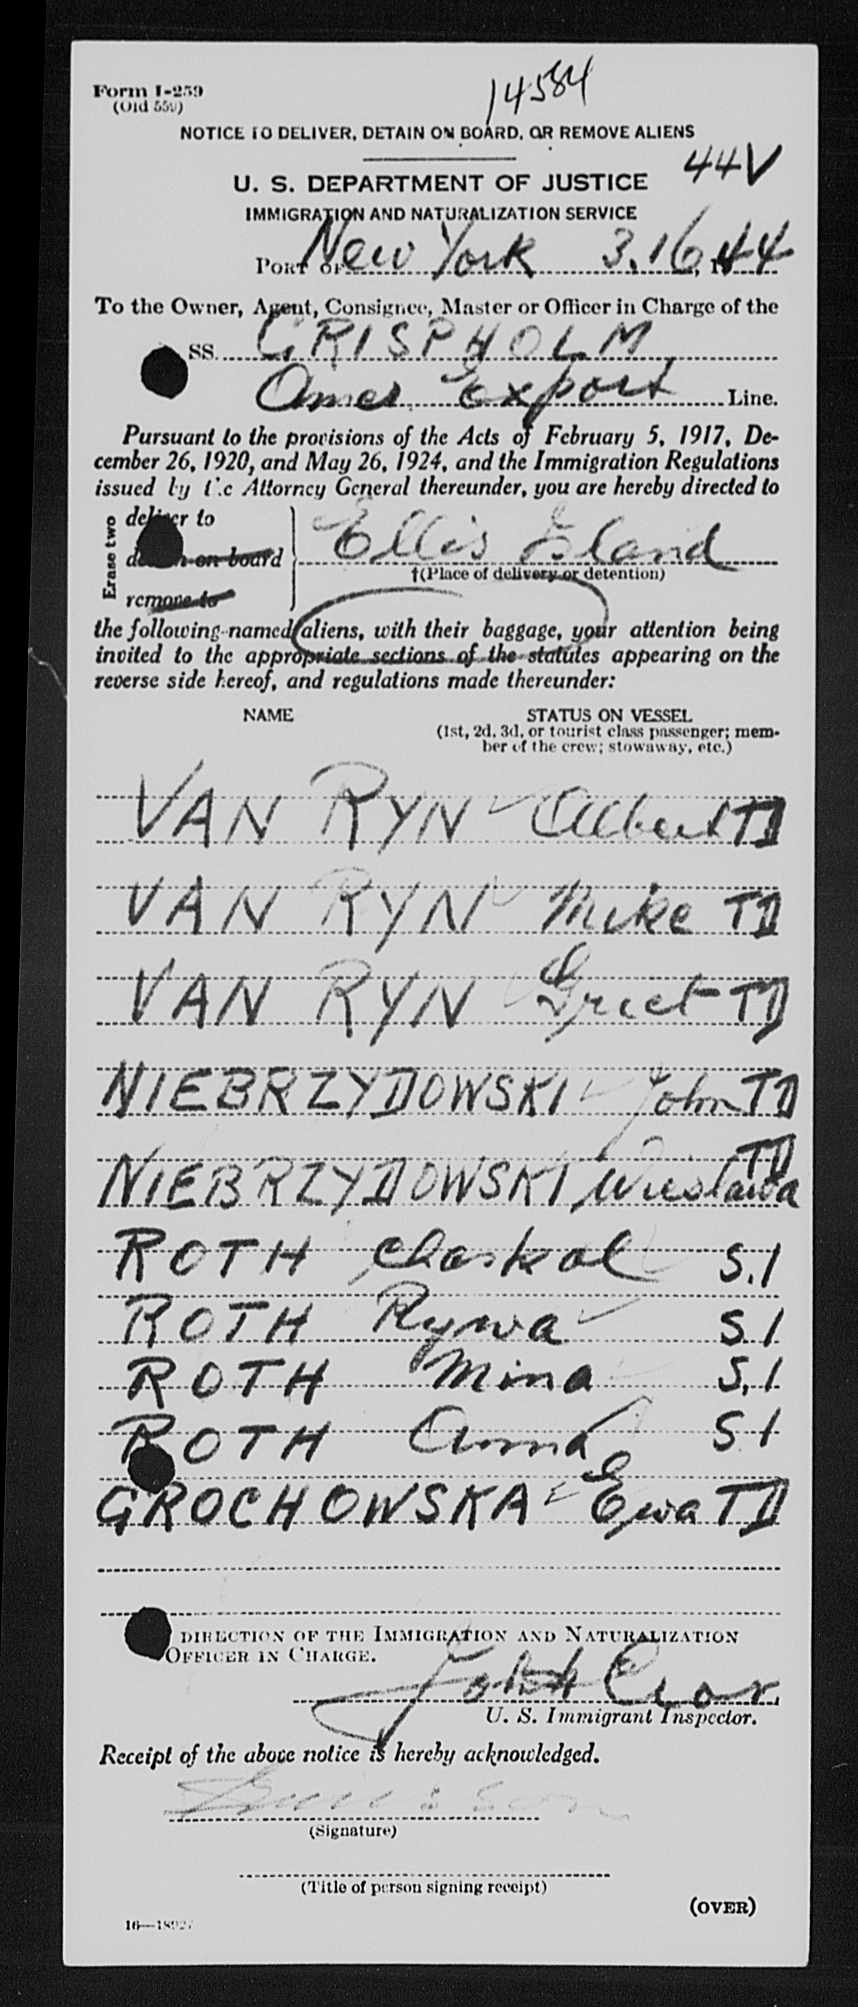 Form I-259
(Old 559)
14584
NOTICE TO DELIVER, DETAIN ON BOARD, OR REMOVE ALIENS
44V
U. S. DEPARTMENT OF JUSTICE
IMMIGRATION AND NATURALIZATION SERVICE
PORT OF New York 3.16, 1944
To the Owner, Agent, Consignee, Master or Officer in Charge of the
SS. GRISPHOLM
Amer Export Line.
Pursuant to the provisions of the Acts of February 5, 1917, De-
cember 26, 1920, and May 26, 1924, and the Immigration Regulations
issued by the Attorney General thereunder, you are hereby directed to
Erase two
deliver to
detain on board
remove to
Ellis Island
†(Place of delivery or detention)
the following-named aliens, with their baggage, your attention being
invited to the appropriate sections of the statutes appearing on the
reverse side hereof, and regulations made thereunder:
NAME STATUS ON VESSEL
(1st, 2d, 3d, or tourist class passenger; mem-
ber of the crew; stowaway, etc.)
VAN RYN Albert TD
VAN RYN Mike TD
VAN RYN Griet TD
NIEBRZYDOWSKI John TD
NIEBRZYDOWSKI Wieslawa TD
ROTH Chaskal S.I
ROTH Rywa S.I
ROTH Mina S.I
ROTH Anna S.I
GROCHOWSKA Ewa TD
DIRECTION OF THE IMMIGRATION AND NATURALIZATION
OFFICER IN CHARGE.
John
U. S. Immigrant Inspector.
Receipt of the above notice is hereby acknowledged.
(Signature)
(Title of person signing receipt)
(OVER)